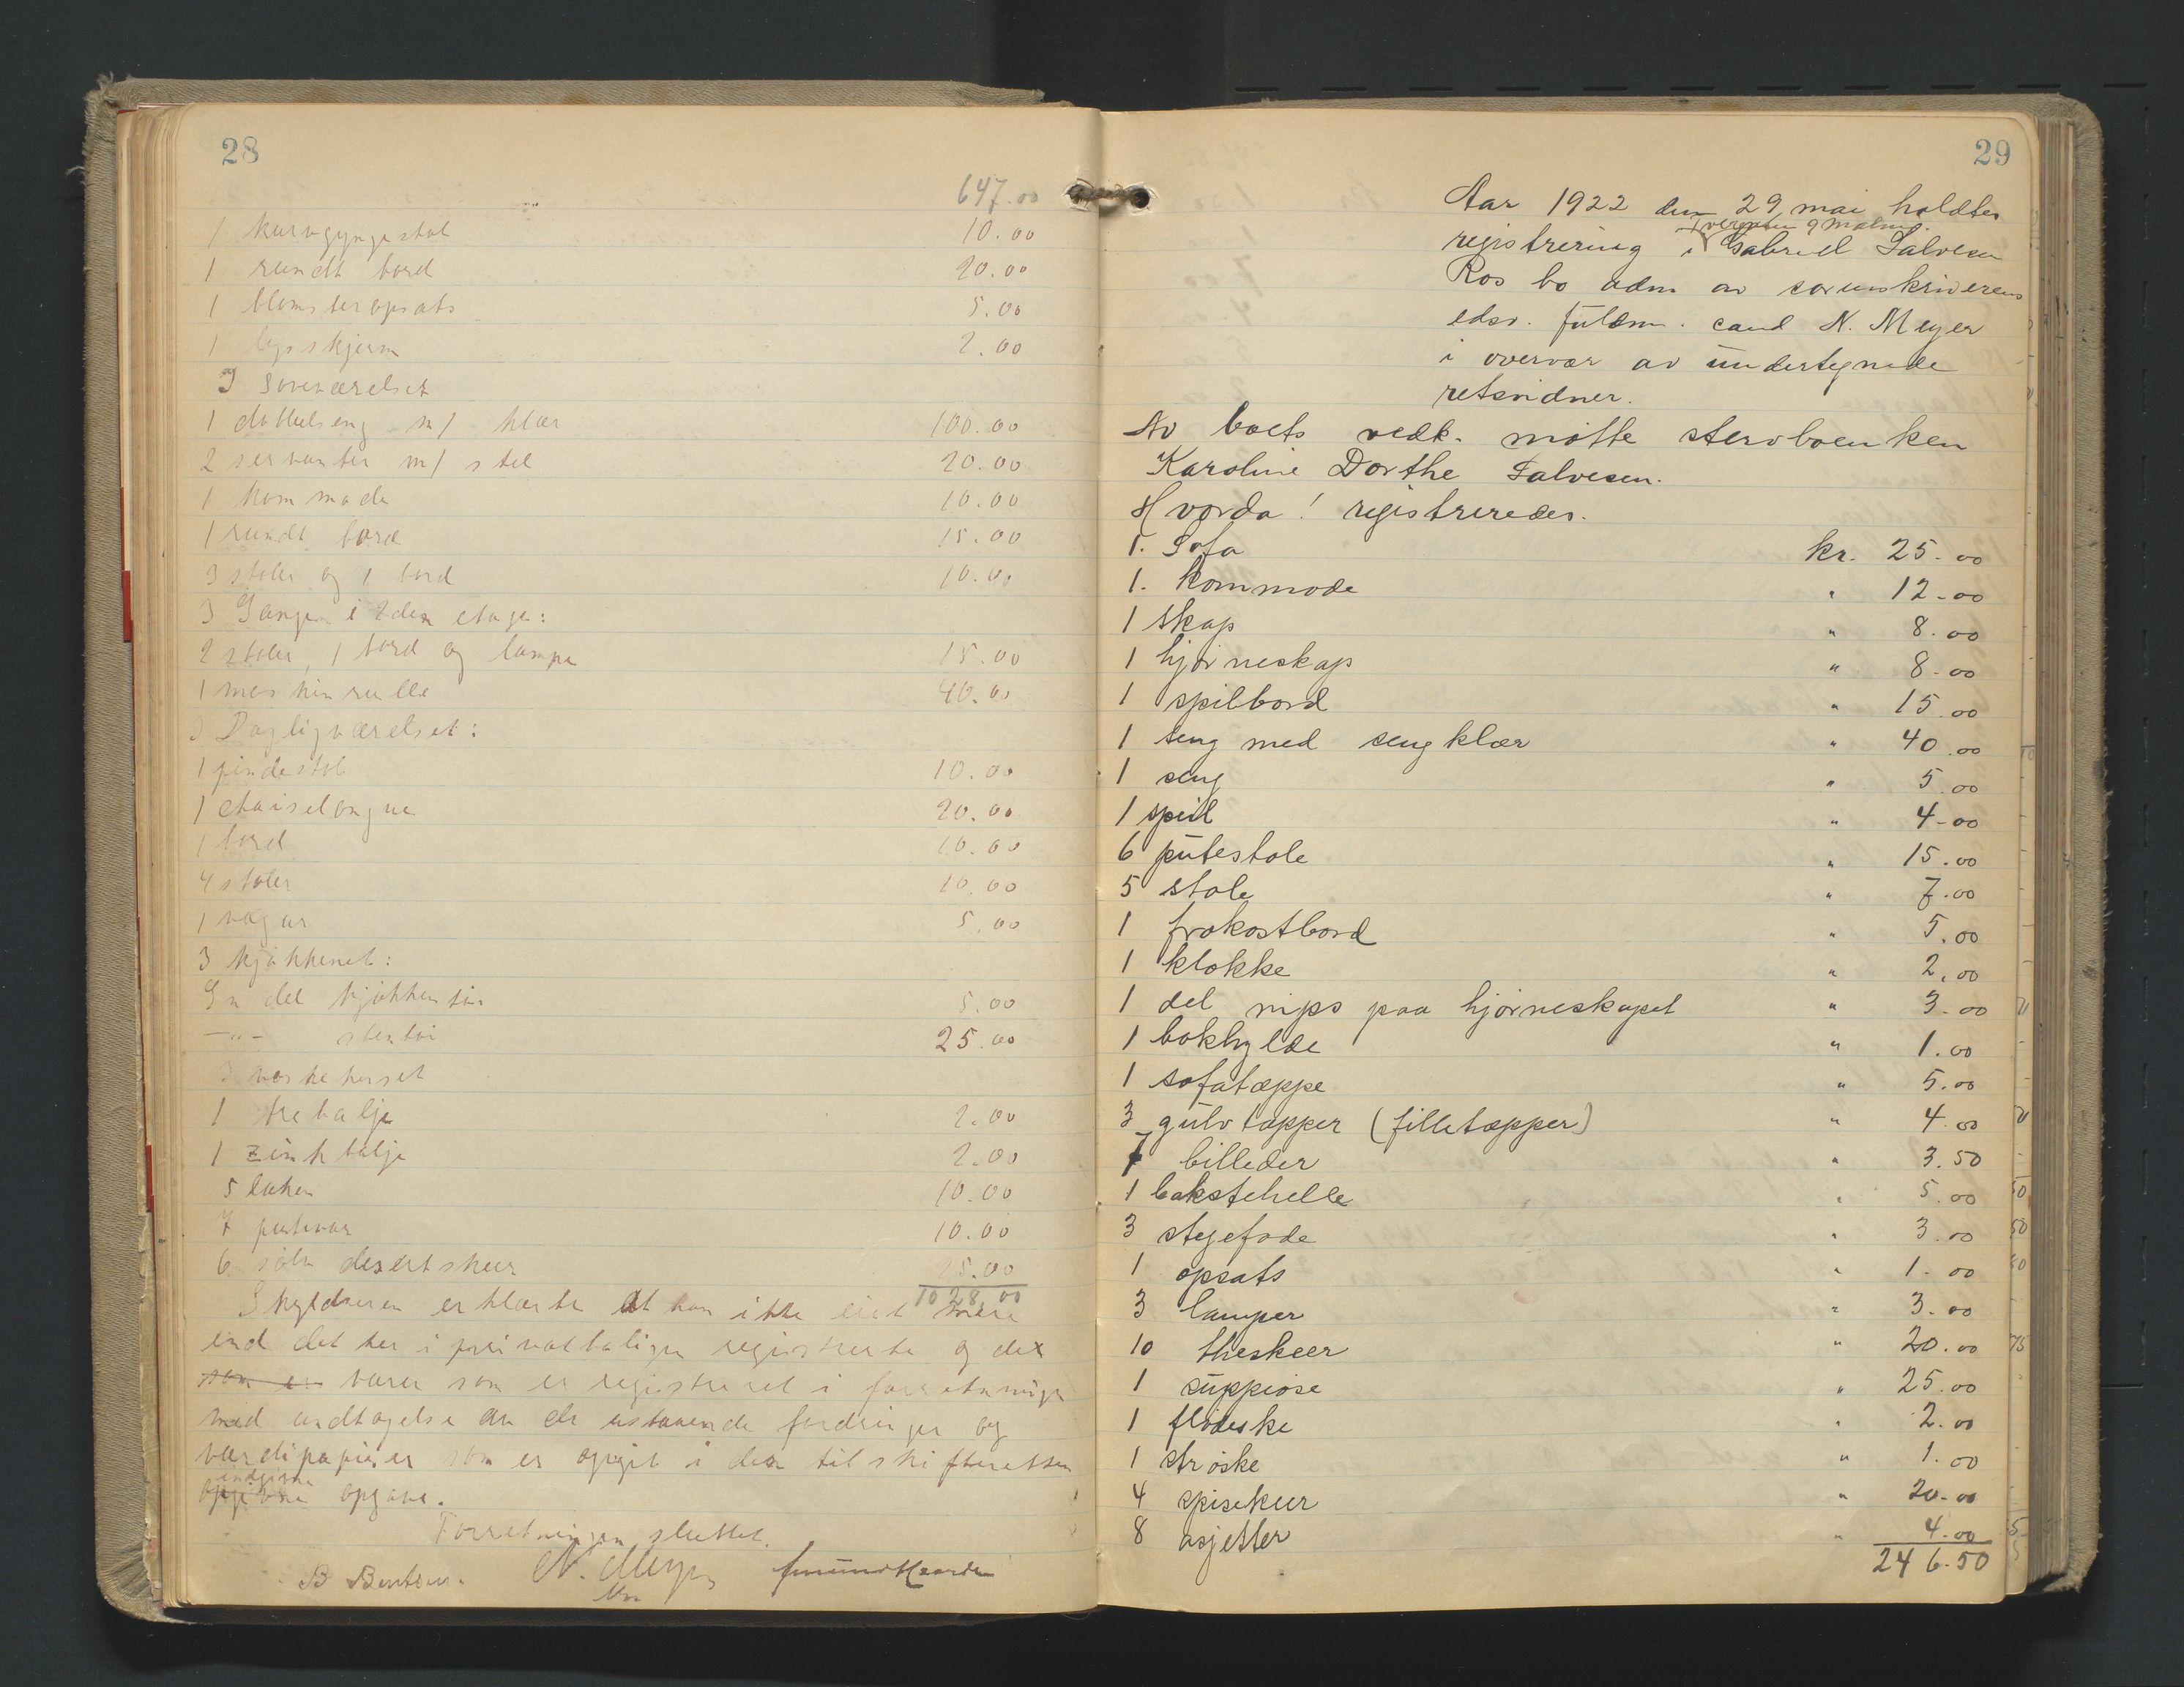 28
647.00
1 kurvgyngestol 10.00
1 rundt bord 20.00
1 blomsteropsats 5.00
1 lysskjerm 2.00
I soveværelset
1 dobbelseng m/ klær 100.00
2 servanter m/ stel 20.00
1 kommode 10.00
1 rundt bord 15.00
3 stoler og 1 bord 10.00
I Gangen i 2den etage:
2 stoler, 1 bord og lampe 15.00
1 maskinrulle 40.00
I Dagligværelset:
1 pindestol 10.00
1 chaiselongue 20.00
1 bord 10.00
4 stoler 10.00
1 vægur 5.00
I kjøkkenet:
En del kjøkkentøi 5.00
-"- stentøi 25.00
I vaskehuset
1 trebalje 2.00
1 zinkbalje 2.00
5 laken 10.00
7 putevar 10.00
6 sølv desertskeer 25.00
1028.00
Skyldneren erklærte at han ikke eiet mere
end det her i privatboligen registrerte og det
som er varer som er registreret i forretningen
med undtagelse av de utstaaende fordringer og
værdipapirer som er opgit i den til skifteretten
indgivne
opgivne opgave.
Forretningen sluttet.
B Bentsen. N. Meyer
29
Aar 1922 den 29 mai holdtes
registrering i Gabriel Salvesen
Ros bo adm av sorenskriverens
edsv. fuldm. cand N. Meyer
i overvær av undertegnede
retsvidner.
Av boets vedk. møtte stervboenken
Karoline Dorthe Salvesen.
Hvorda! registreredes.
1. Sofa kr. 25.00
1. kommode " 12.00
1 skap " 8.00
1 hjørneskap " 8.00
1 spilbord " 15.00
1 seng med sengklær " 40.00
1 seng " 5.00
1 speil " 4.00
6 putestole " 15.00
5 stole " 7.00
1 frokostbord " 5.00
1 klokke " 2.00
1 del nips paa hjørneskapet " 3.00
1 bokhylde " 1.00
1 sofatæppe " 5.00
3 gulvtæpper (filletæpper) " 4.00
7 billeder " 3.50
1 bakstehelle " 5.00
3 stegefade " 3.00
1 opsats " 1.00
3 lamper " 3.00
10 theskeer " 20.00
1 suppeøse " 25.00
1 fløteske " 2.00
1 strøske " 1.00
4 spiseskeer " 20.00
8 asjetter " 4.00
246.50